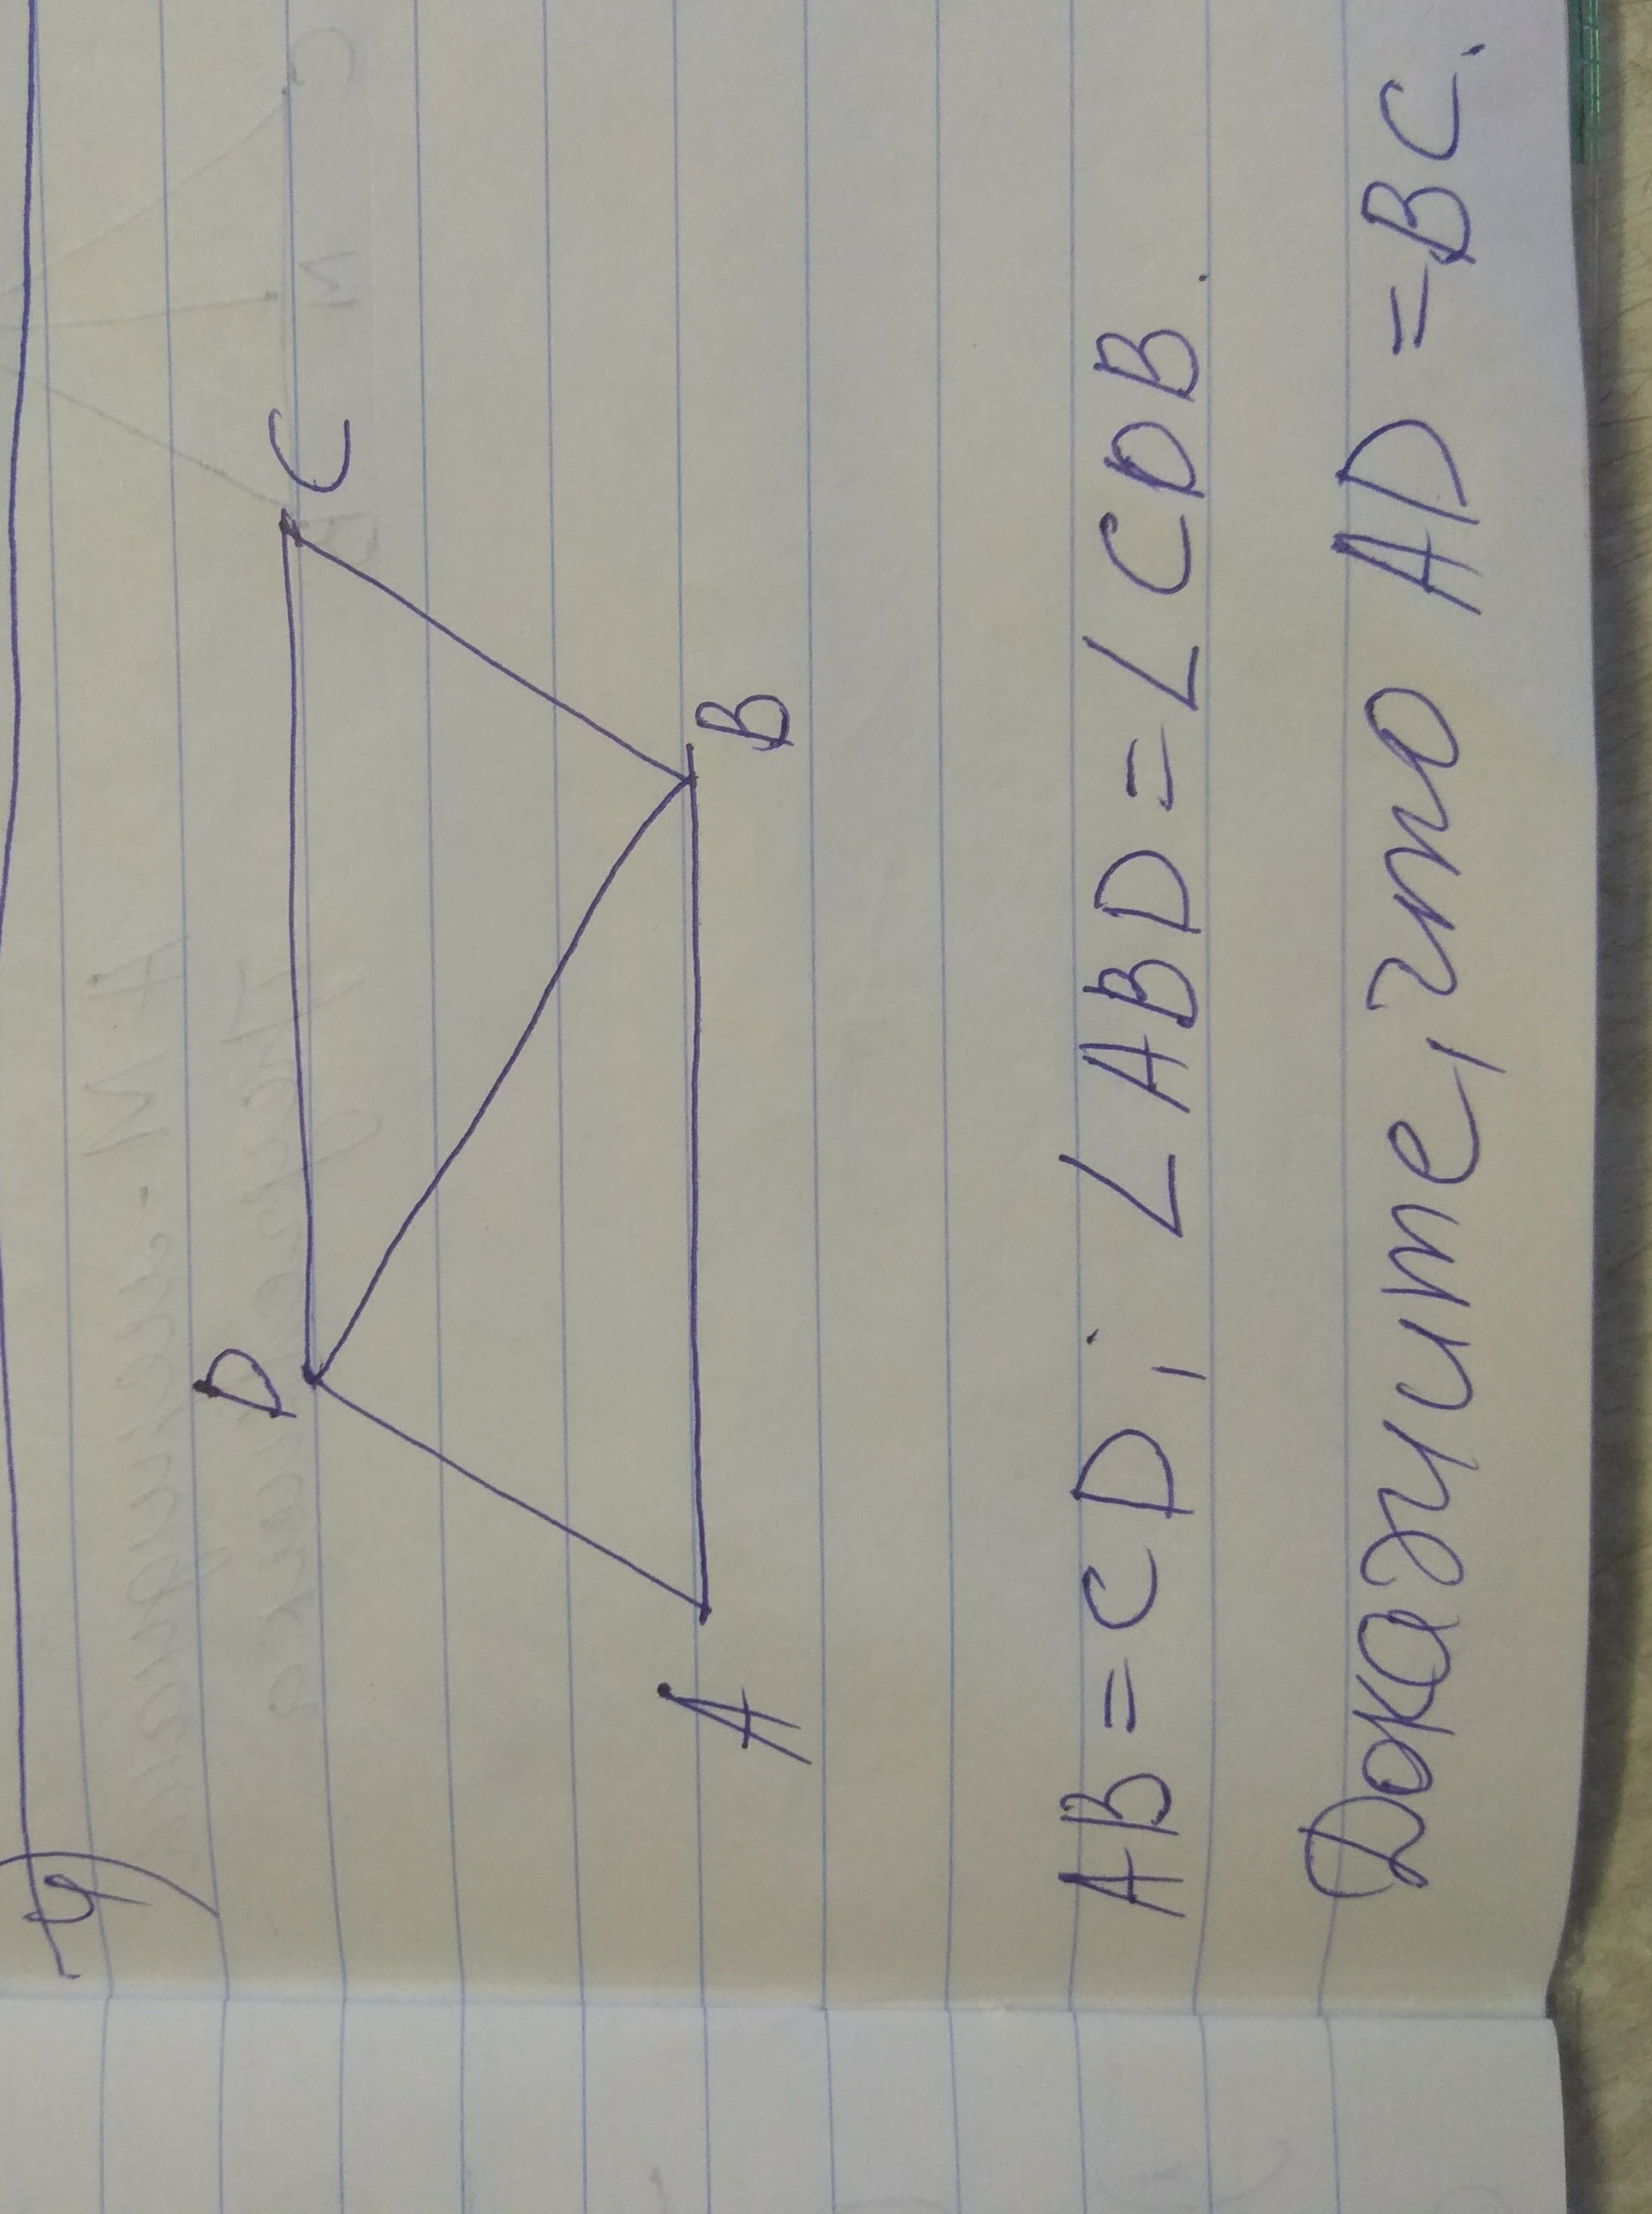 4)
D C
A B
AB = CD, ∠ABD = ∠CDB.
Докажите, что AD = BC.